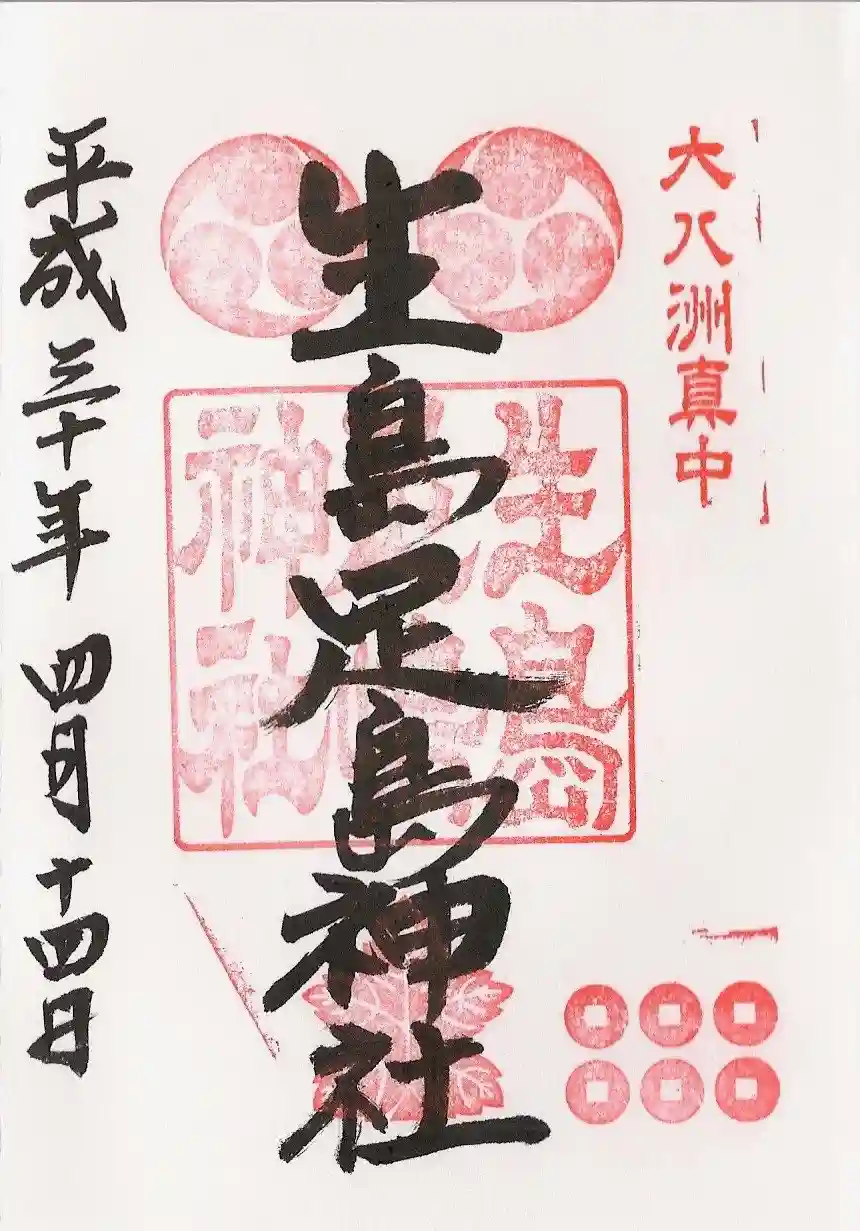 大八洲真中
生島足島神社
生島足島神社
平成三十年四月十四日